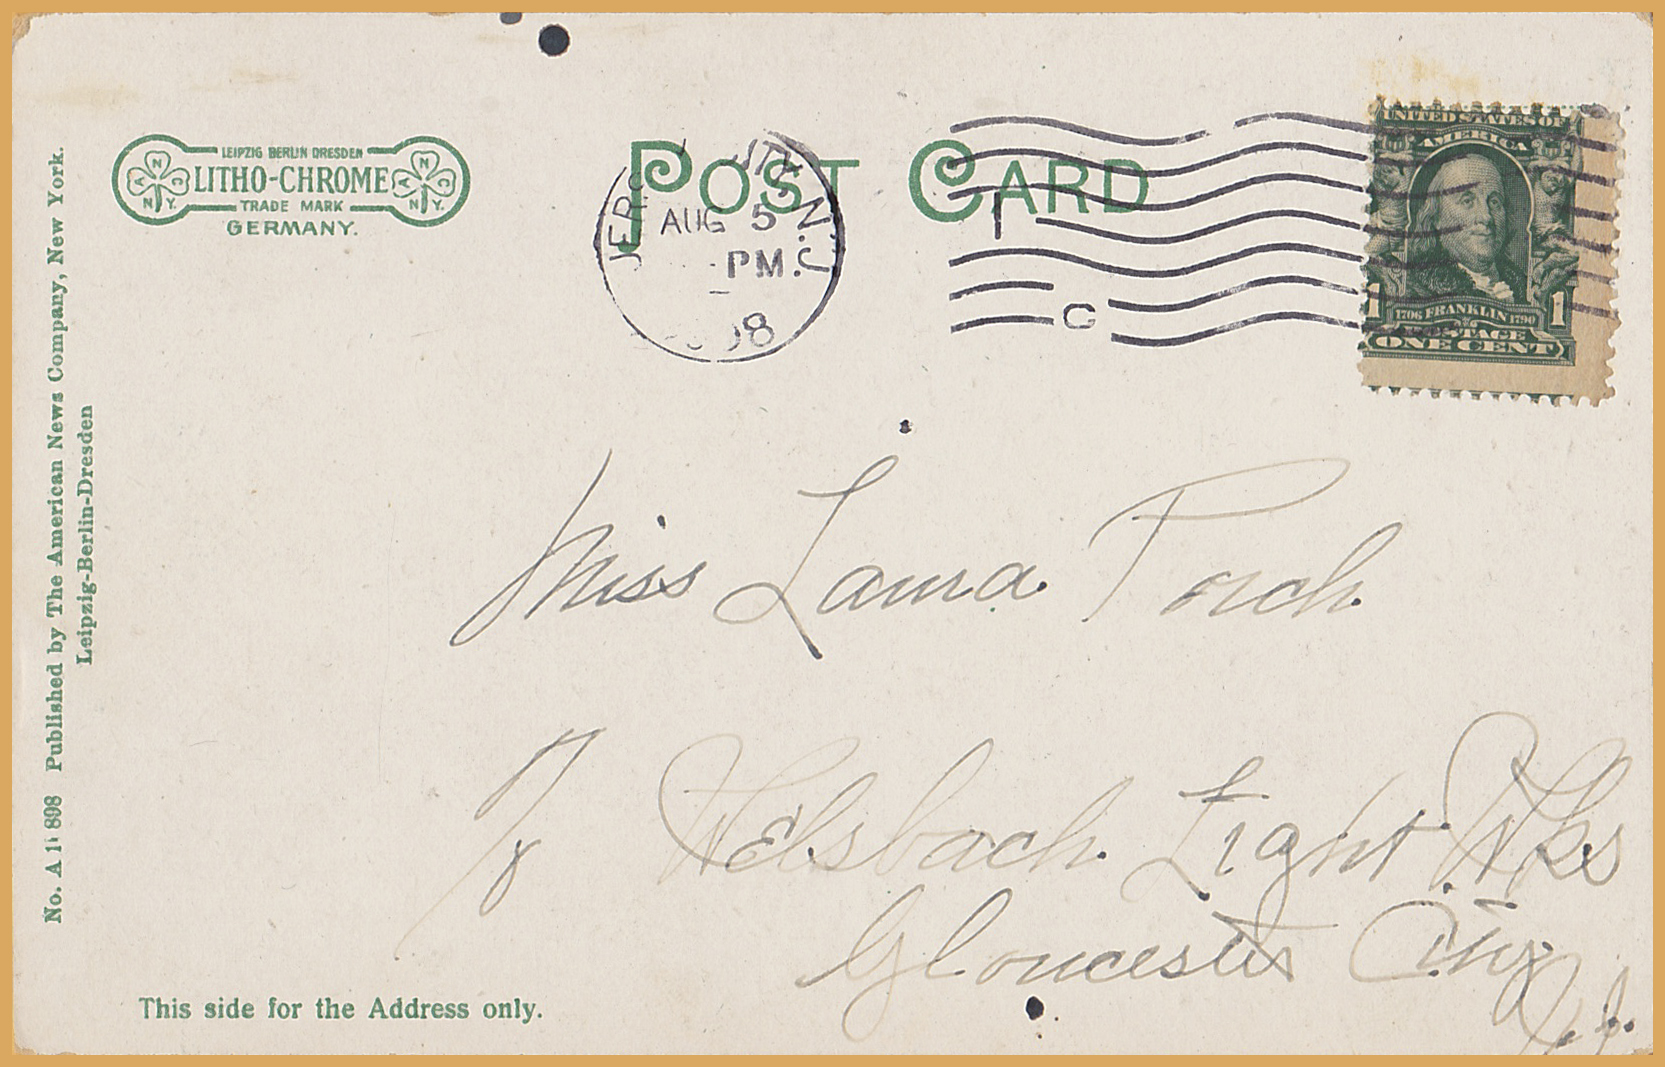 LEIPZIG BERLIN DRESDEN
LITHO-CHROME
TRADE MARK
GERMANY.
N Y.
N Y.
POST CARD
JERS ITY N.J.
AUG 5
PM.
08
C
UNITED STATES OF
AMERICA
1706 FRANKLIN 1790
1 1
POSTAGE
ONE CENT
Miss Laura Porch.
Welsbach Light Wks
Gloucester City
N.J.
This side for the Address only.
Published by The American News Company, New York.
Leipzig-Berlin-Dresden